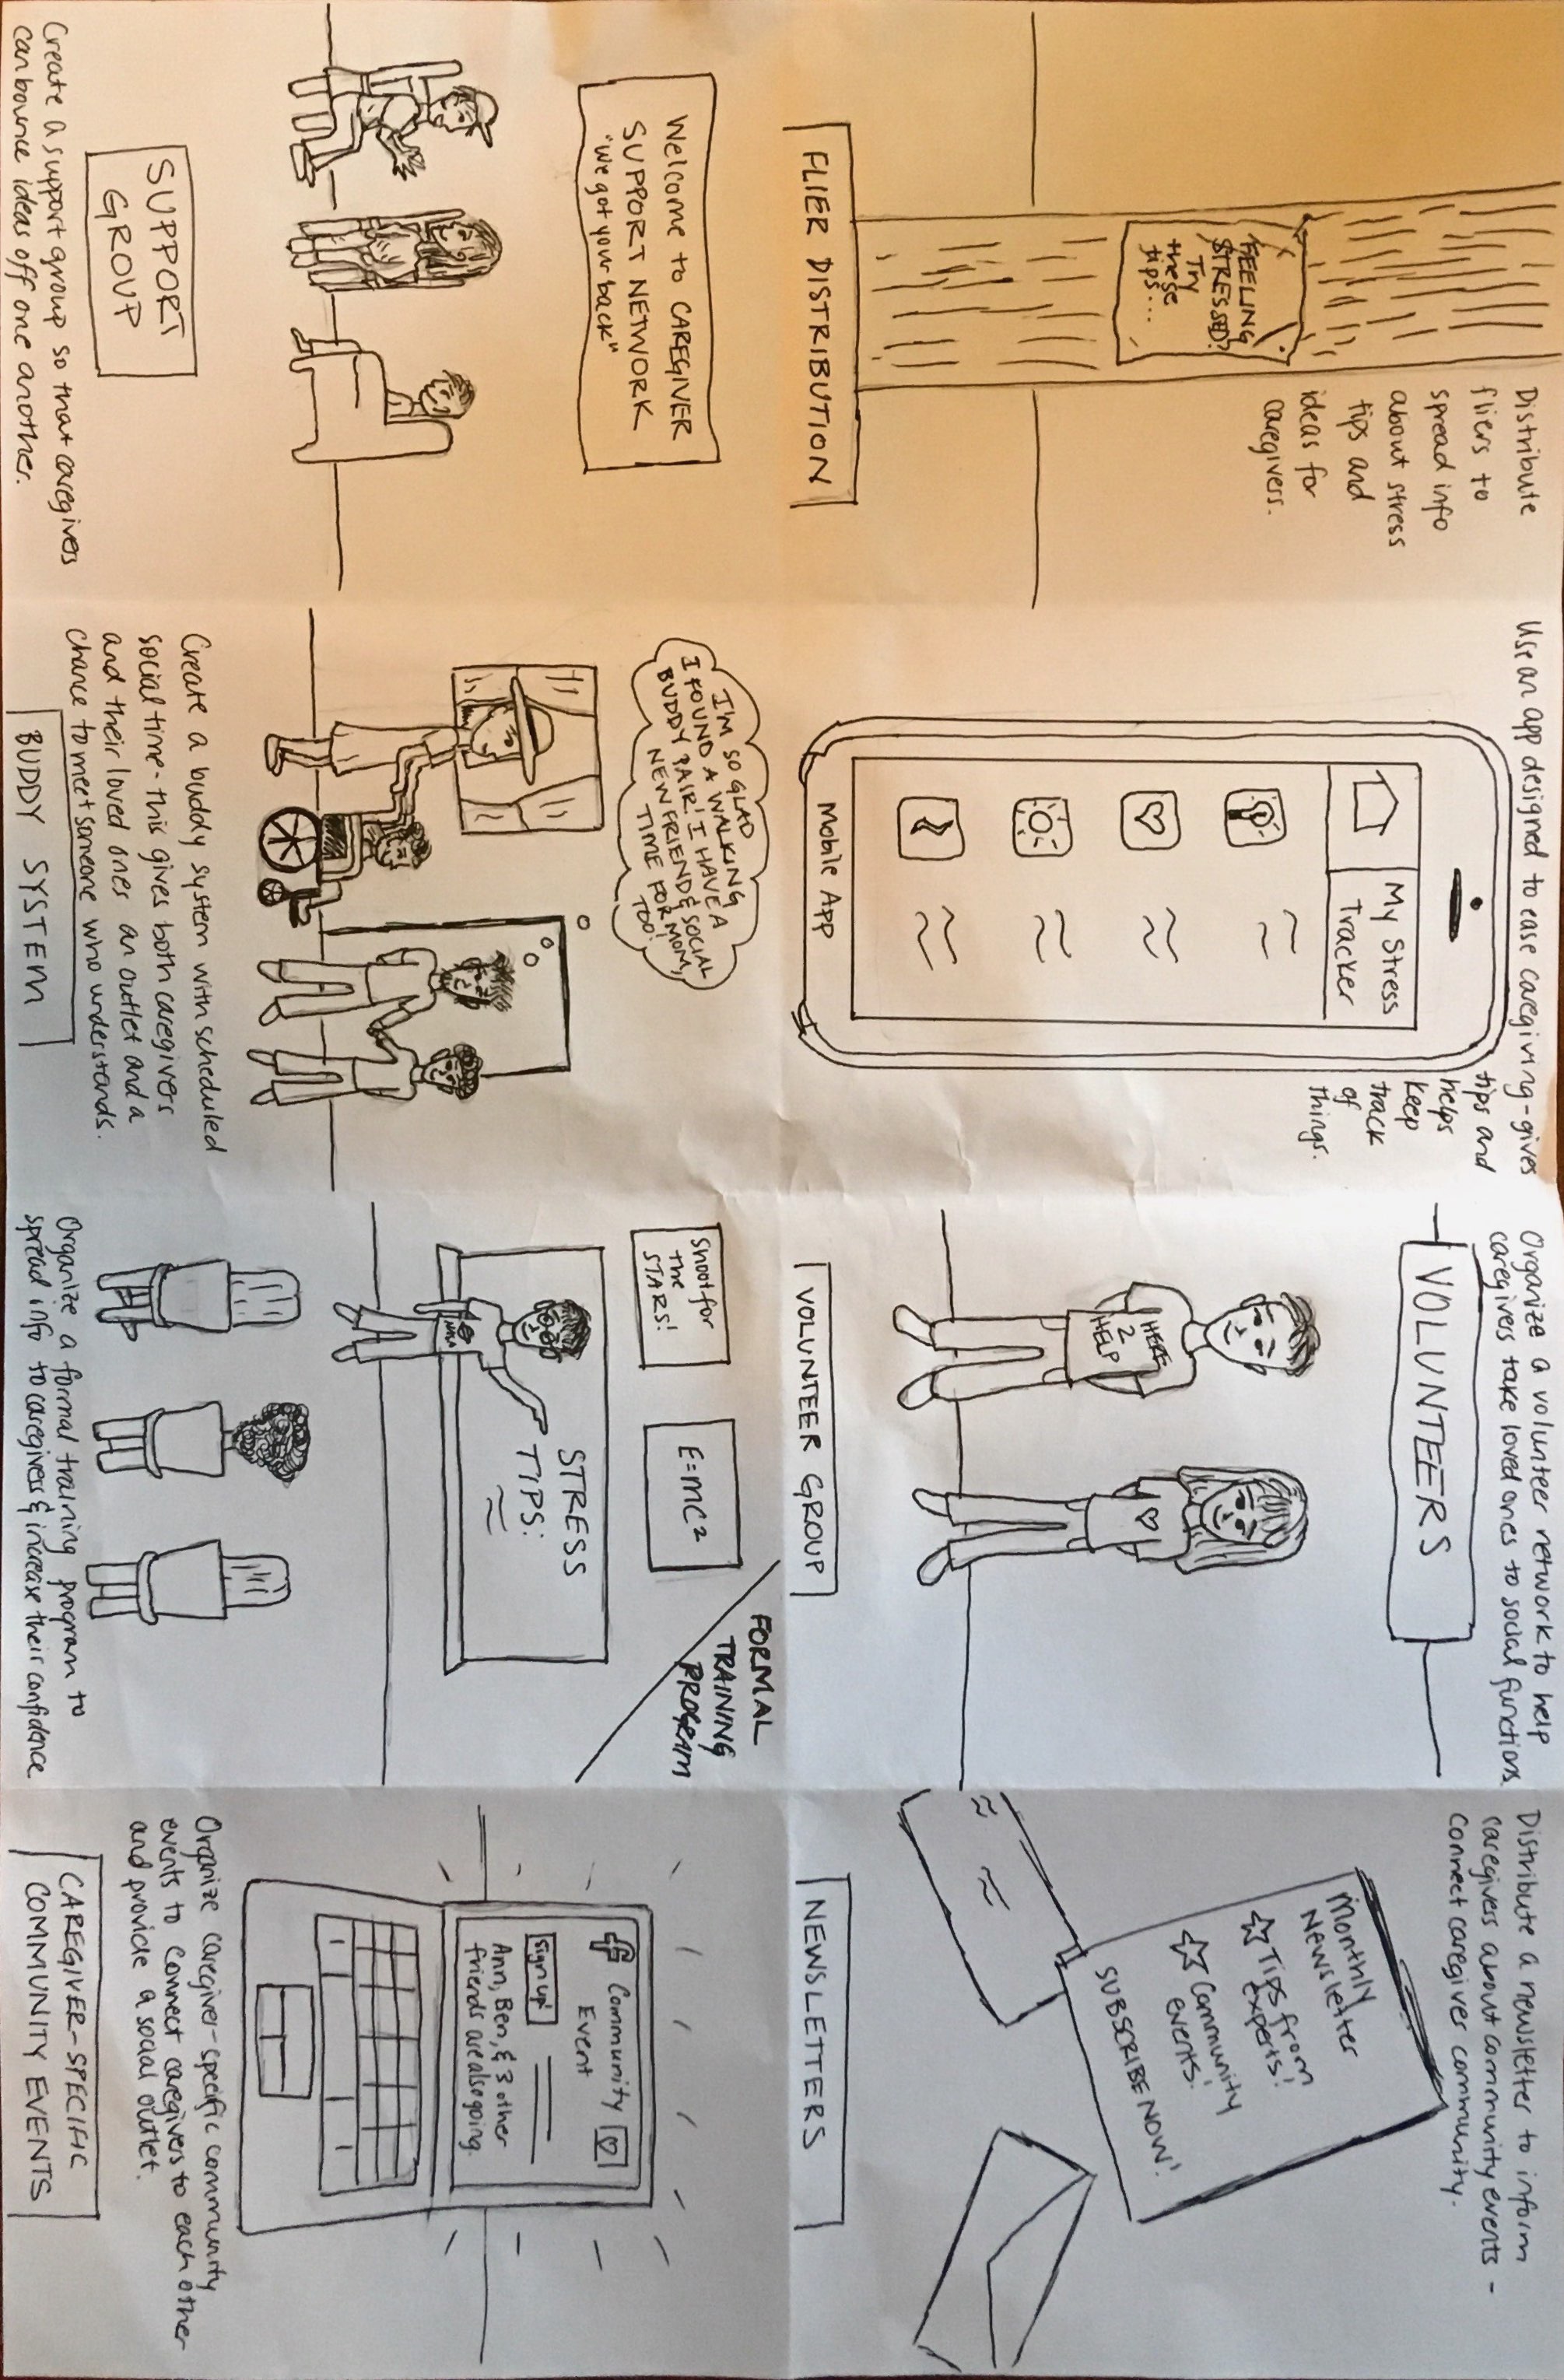 Distribute
fliers to
spread info
about stress
tips and
ideas for
caregivers.
FEELING
STRESSED?
Try
these
tips...
FLIER DISTRIBUTION
Use an app designed to ease caregiving-gives
tips and
helps
keep
track
of
things.
My Stress
Tracker
Mobile App
Organize a volunteer network to help
caregivers take loved ones to social functions.
VOLUNTEERS
HERE
2
HELP
VOLUNTEER GROUP
Distribute a newsletter to inform
caregivers about community events -
Connect caregiver community.
Monthly
Newsletter
Tips from
experts!
Community
events!
SUBSCRIBE NOW!
NEWSLETTERS
Welcome to CAREGIVER
SUPPORT NETWORK
"We got your back"
SUPPORT
GROUP
Create a support group so that caregivers
can bounce ideas off one another.
I'M SO GLAD
I FOUND A WALKING
BUDDY PAIR! I HAVE A
NEW FRIEND & SOCIAL
TIME FOR MOM,
TOO!
Create a buddy system with scheduled
social time - this gives both caregivers
and their loved ones an outlet and a
chance to meet someone who understands.
BUDDY SYSTEM
FORMAL
TRAINING
PROGRAM
Shoot for
the
STARS!
E=MC²
STRESS
TIPS:
NASA
Organize a formal training program to
spread info to caregivers & increase their confidence
f Community
Event
Sign up!
Ann, Ben, & 3 other
friends are also going.
Organize caregiver-specific community
events to connect caregivers to each other
and provide a social outlet.
CAREGIVER-SPECIFIC
COMMUNITY EVENTS